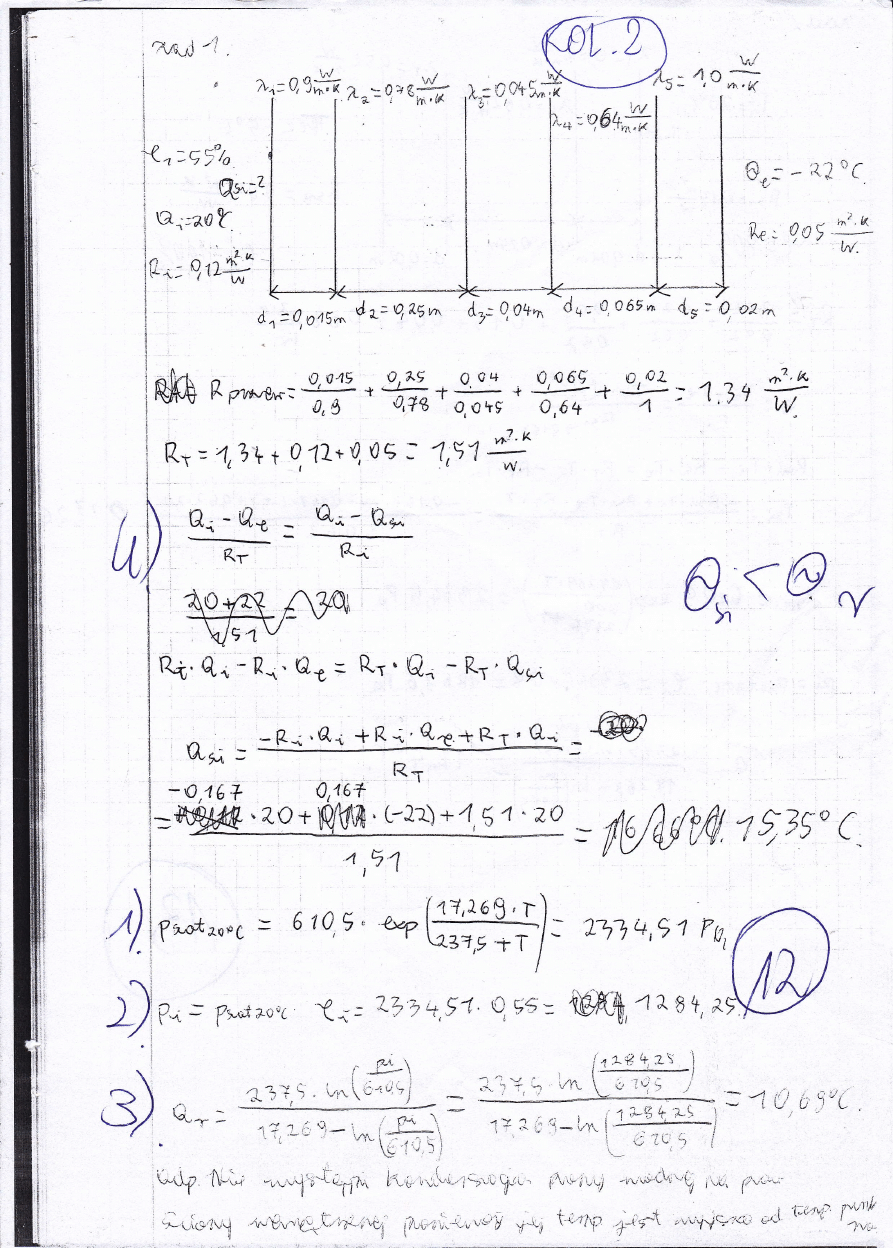 KOL.2
zad 1.
λ₁=0,9 W/m·K λ₂=0,78 W/m·K λ₃=0,045 W/m·K λ₄=0,64 W/m·K λ₅=1,0 W/m·K
φ₁=55%
Θsi=?
Θi=20°C
Ri=0,12 m²·K/W
Θe=-22°C
Re=0,05 m²·K/W
d₁=0,015m d₂=0,25m d₃=0,04m d₄=0,065m d₅=0,02m
R = 0,015/0,9 + 0,25/0,78 + 0,04/0,045 + 0,065/0,64 + 0,02/1 = 1,34 m²·K/W
R_T = 1,34+0,12+0,05 = 1,51 m²·K/W
4) (Θi - Θe)/R_T = (Θi - Θsi)/Ri
Θsi < Θr
Ri·Θi - Ri·Θe = R_T·Θi - R_T·Θsi
Θsi = (-Ri·Θi + Ri·Θe + R_T·Θi)/R_T =
= (-0,167·20 + 0,167·(-22) + 1,51·20)/1,51 = 15,35°C.
1) psat20°C = 610,5 · exp(17,269·T/(237,5+T)) = 2334,51 Pa
12
2) pi = psat20°C · φi = 2334,51 · 0,55 = 1284,25
3) Θr = 237,5·ln(pi/610,5)/(17,269-ln(pi/610,5)) = 237,5·ln(1284,25/610,5)/(17,269-ln(1284,25/610,5)) = 10,69°C.
odp. Nie występi kondensacja pary wodnej na pow.
ściany wewnętrznej ponieważ jej temp jest wyższa od temp. punk